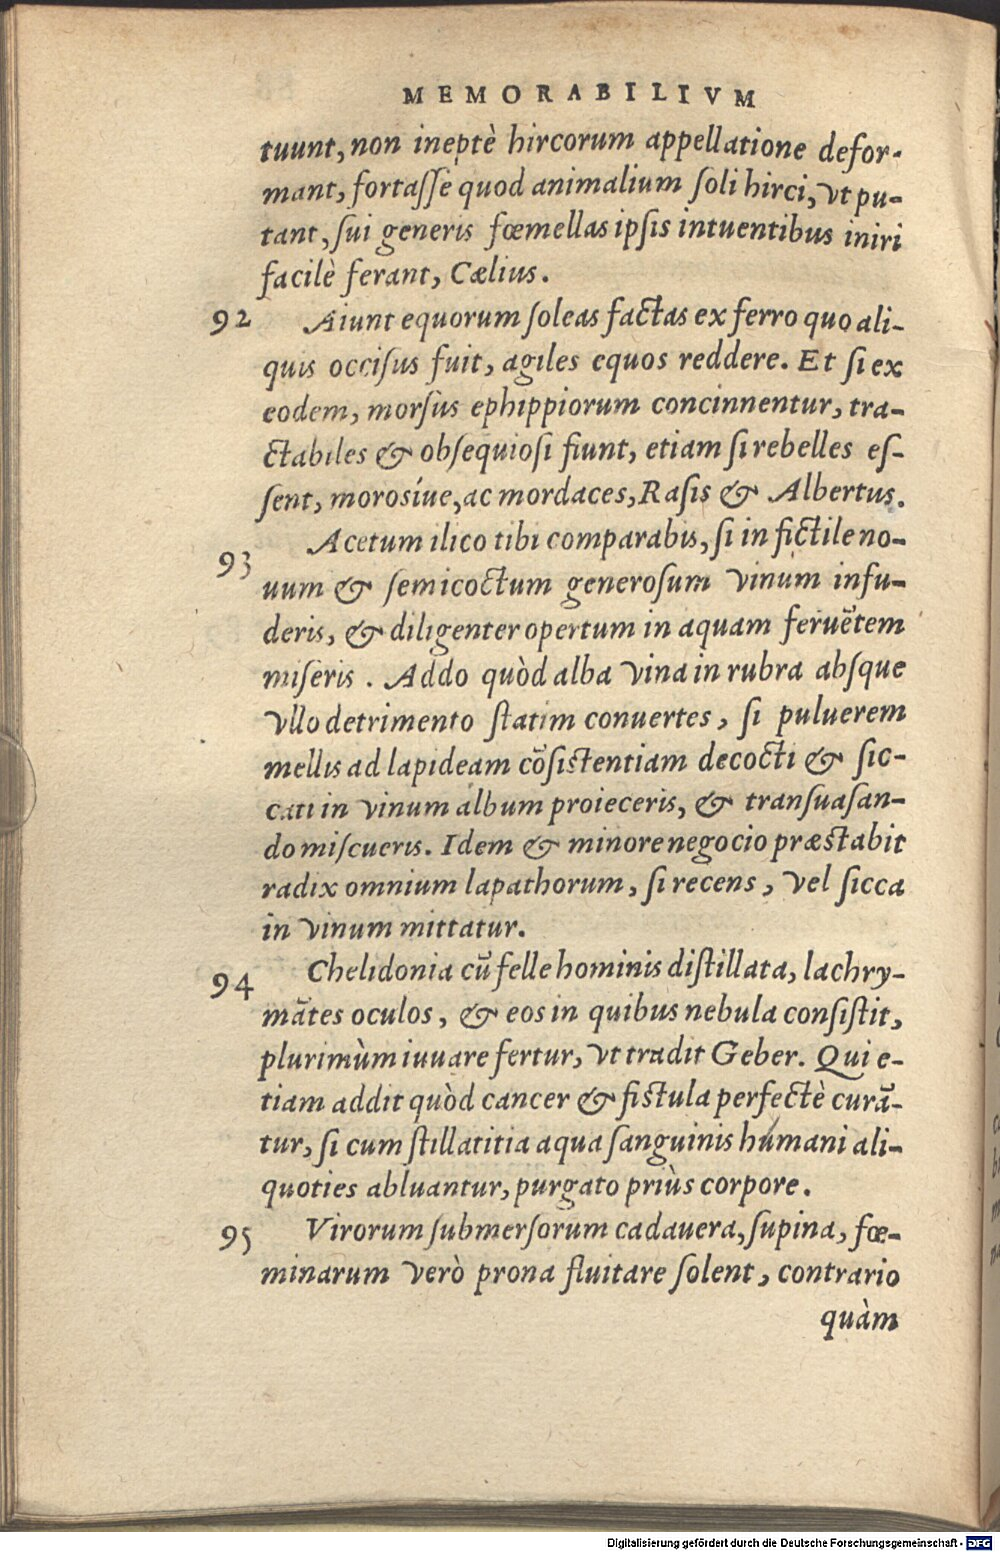 MEMORABILIVM
tuunt, non ineptè hircorum appellatione defor-
mant, fortaſſe quod animalium ſoli hirci, vt pu-
tant, ſui generis fœmellas ipſis intuentibus iniri
facilè ferant, Cælius.
92 Aiunt equorum ſoleas factas ex ferro quo ali-
quis occiſus fuit, agiles equos reddere. Et ſi ex
eodem, morſus ephippiorum concinnentur, tra-
ctabiles & obſequioſi fiunt, etiam ſi rebelles eſ-
ſent, moroſiue, ac mordaces, Raſis & Albertus.
93 Acetum ilico tibi comparabis, ſi in fictile no-
uum & ſemicoctum generoſum vinum infu-
deris, & diligenter opertum in aquam feruētem
miſeris. Addo quòd alba vina in rubra abſque
vllo detrimento ſtatim conuertes, ſi puluerem
mellis ad lapideam cōſiſtentiam decocti & ſic-
cati in vinum album proieceris, & transuaſan-
do miſcueris. Idem & minore negocio præſtabit
radix omnium lapathorum, ſi recens, vel ſicca
in vinum mittatur.
94 Chelidonia cū felle hominis diſtillata, lachry-
mātes oculos, & eos in quibus nebula conſiſtit,
plurimùm iuuare fertur, vt tradit Geber. Qui e-
tiam addit quòd cancer & fiſtula perfectè curā-
tur, ſi cum ſtillatitia aqua ſanguinis humani ali-
quoties abluantur, purgato priùs corpore.
95 Virorum ſubmerſorum cadauera, ſupina, fœ-
minarum verò prona fluitare ſolent, contrario
quàm
Digitalisierung gefördert durch die Deutsche Forschungsgemeinschaft - DFG